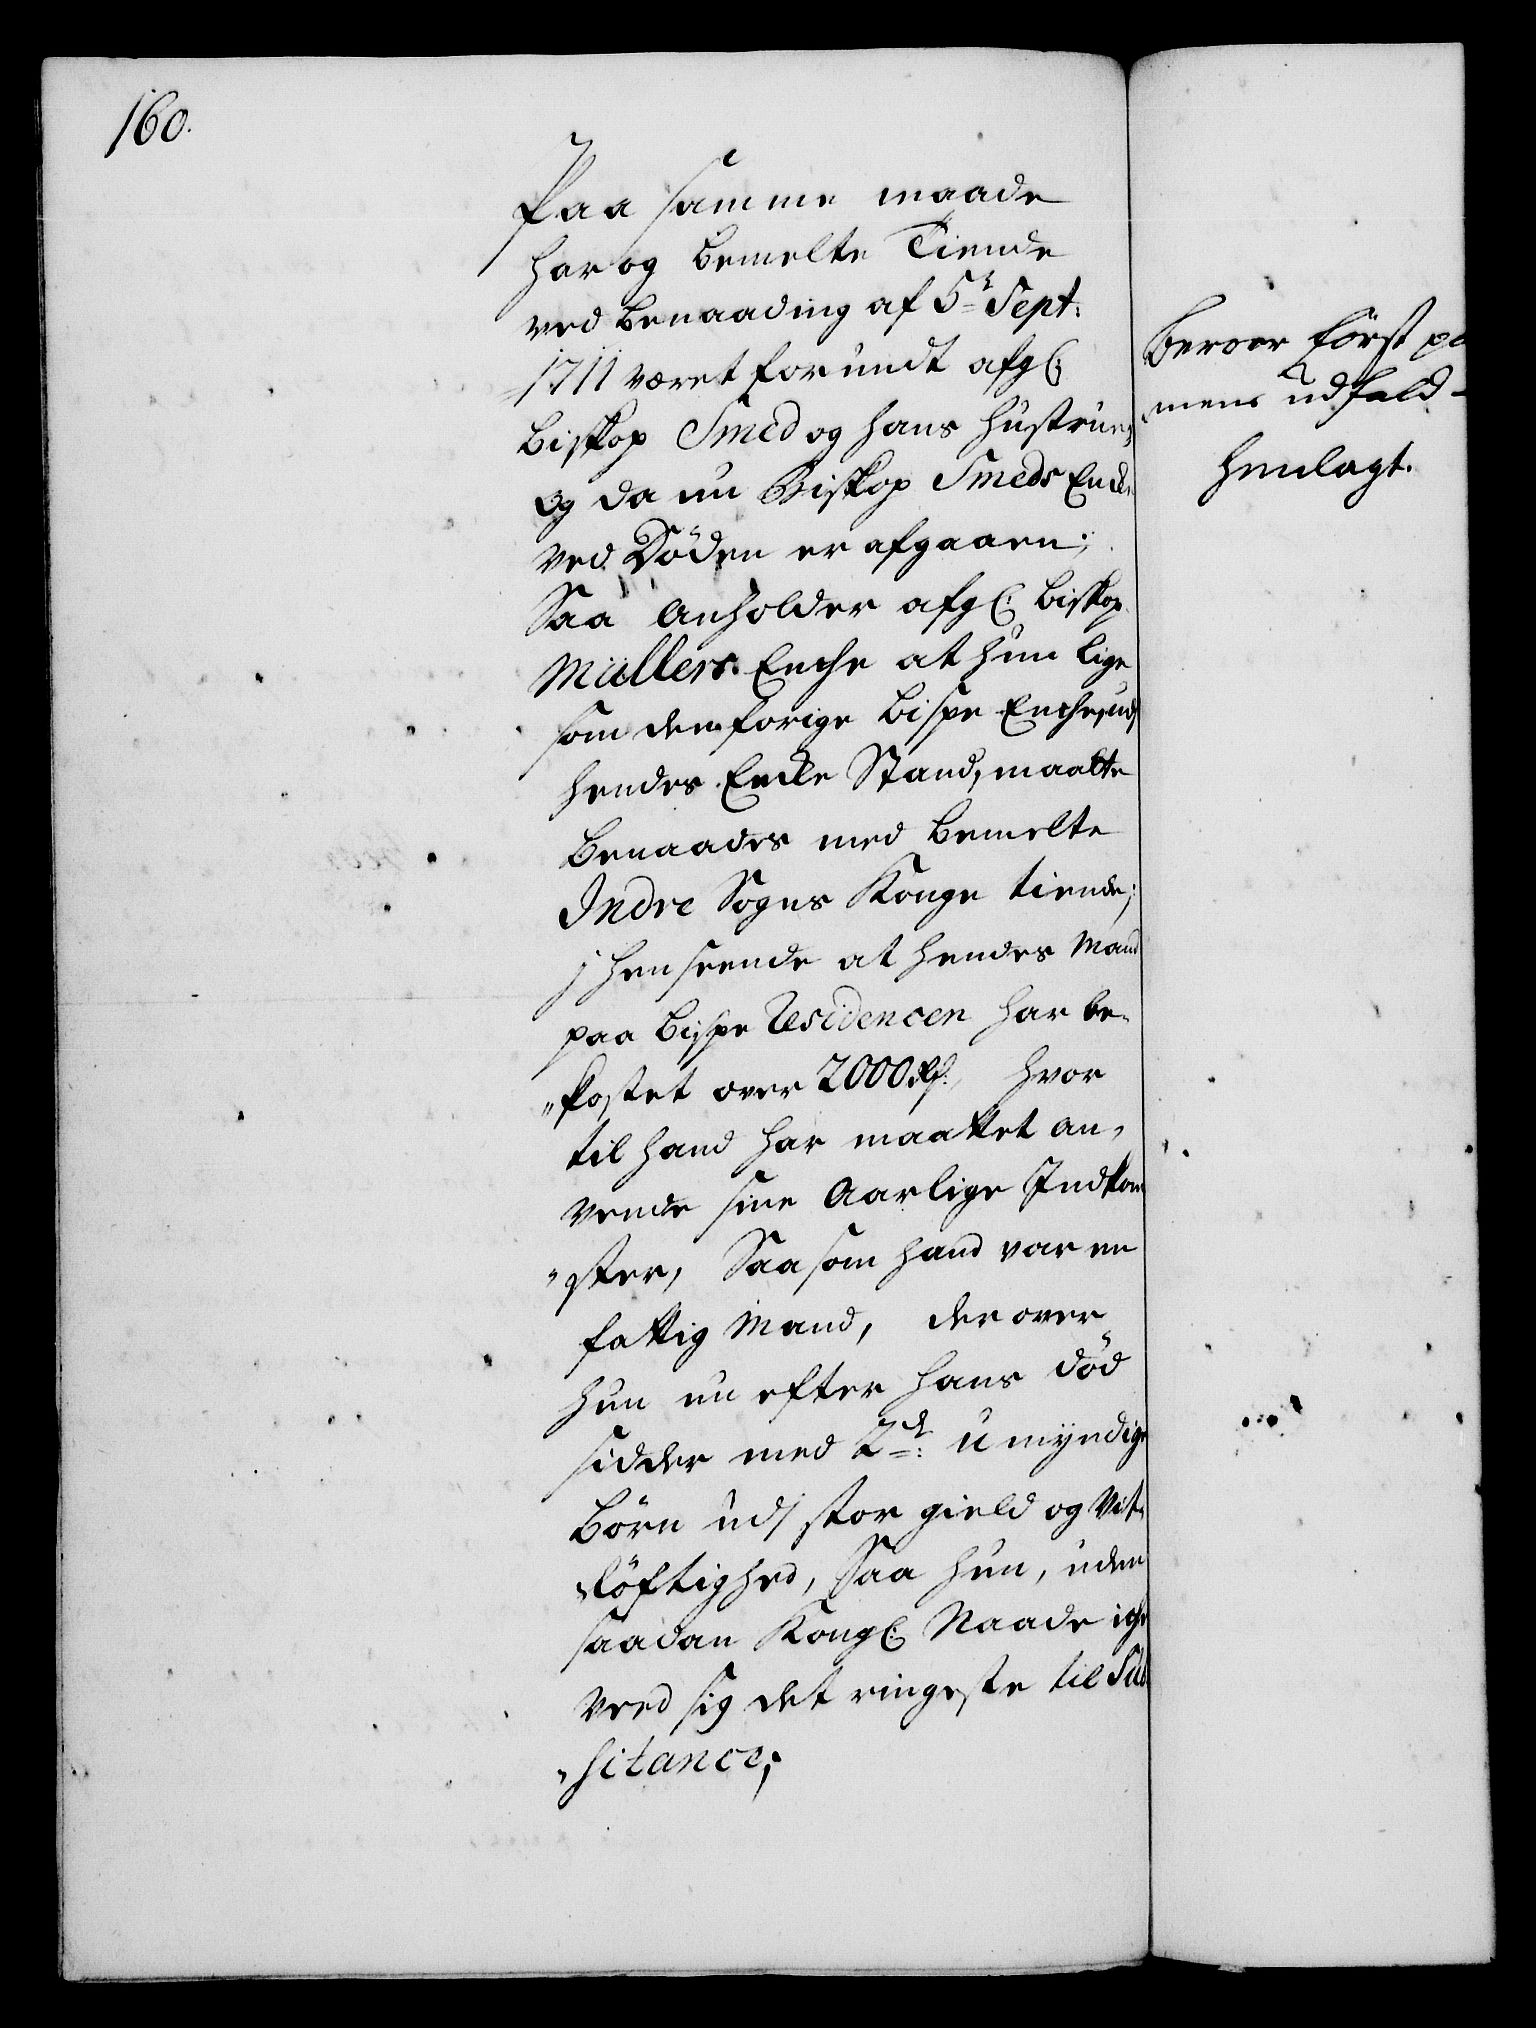 160.
Paa samme maade
har og bemelte Tiende
ved benaading af 5te Sept:
1711 været forundt afgl:
biskop Smed og hans hustrue,
og da nu Biskop Smeds Enke
ved Döden er afgaaen;
Saa anholder afgl: biskop
Müllers Enche at hun lige
som den forige bispe Enche, udj
hendes Encke Stand, maatte
benaades med bemelte
Indre Sogns Konge tiende;
j henseende at hendes Mand
paa bispe Residencen har be-
"kostet over 2000 Rdr., hvor
til hand har maattet an-
vende sine Aarlige Indkom
"ster, Saasom hand var en
fattig Mand, der over
hun nu efter hans död
sidder med 2de: umyndige
börn udj stor gield og vit-
"löftighed, Saa hun, uden
saadan Kongl: Naade iche
veed sig det ringeste til Sub
"sitance;
beroer först pa
mens udfald-
henlagt.